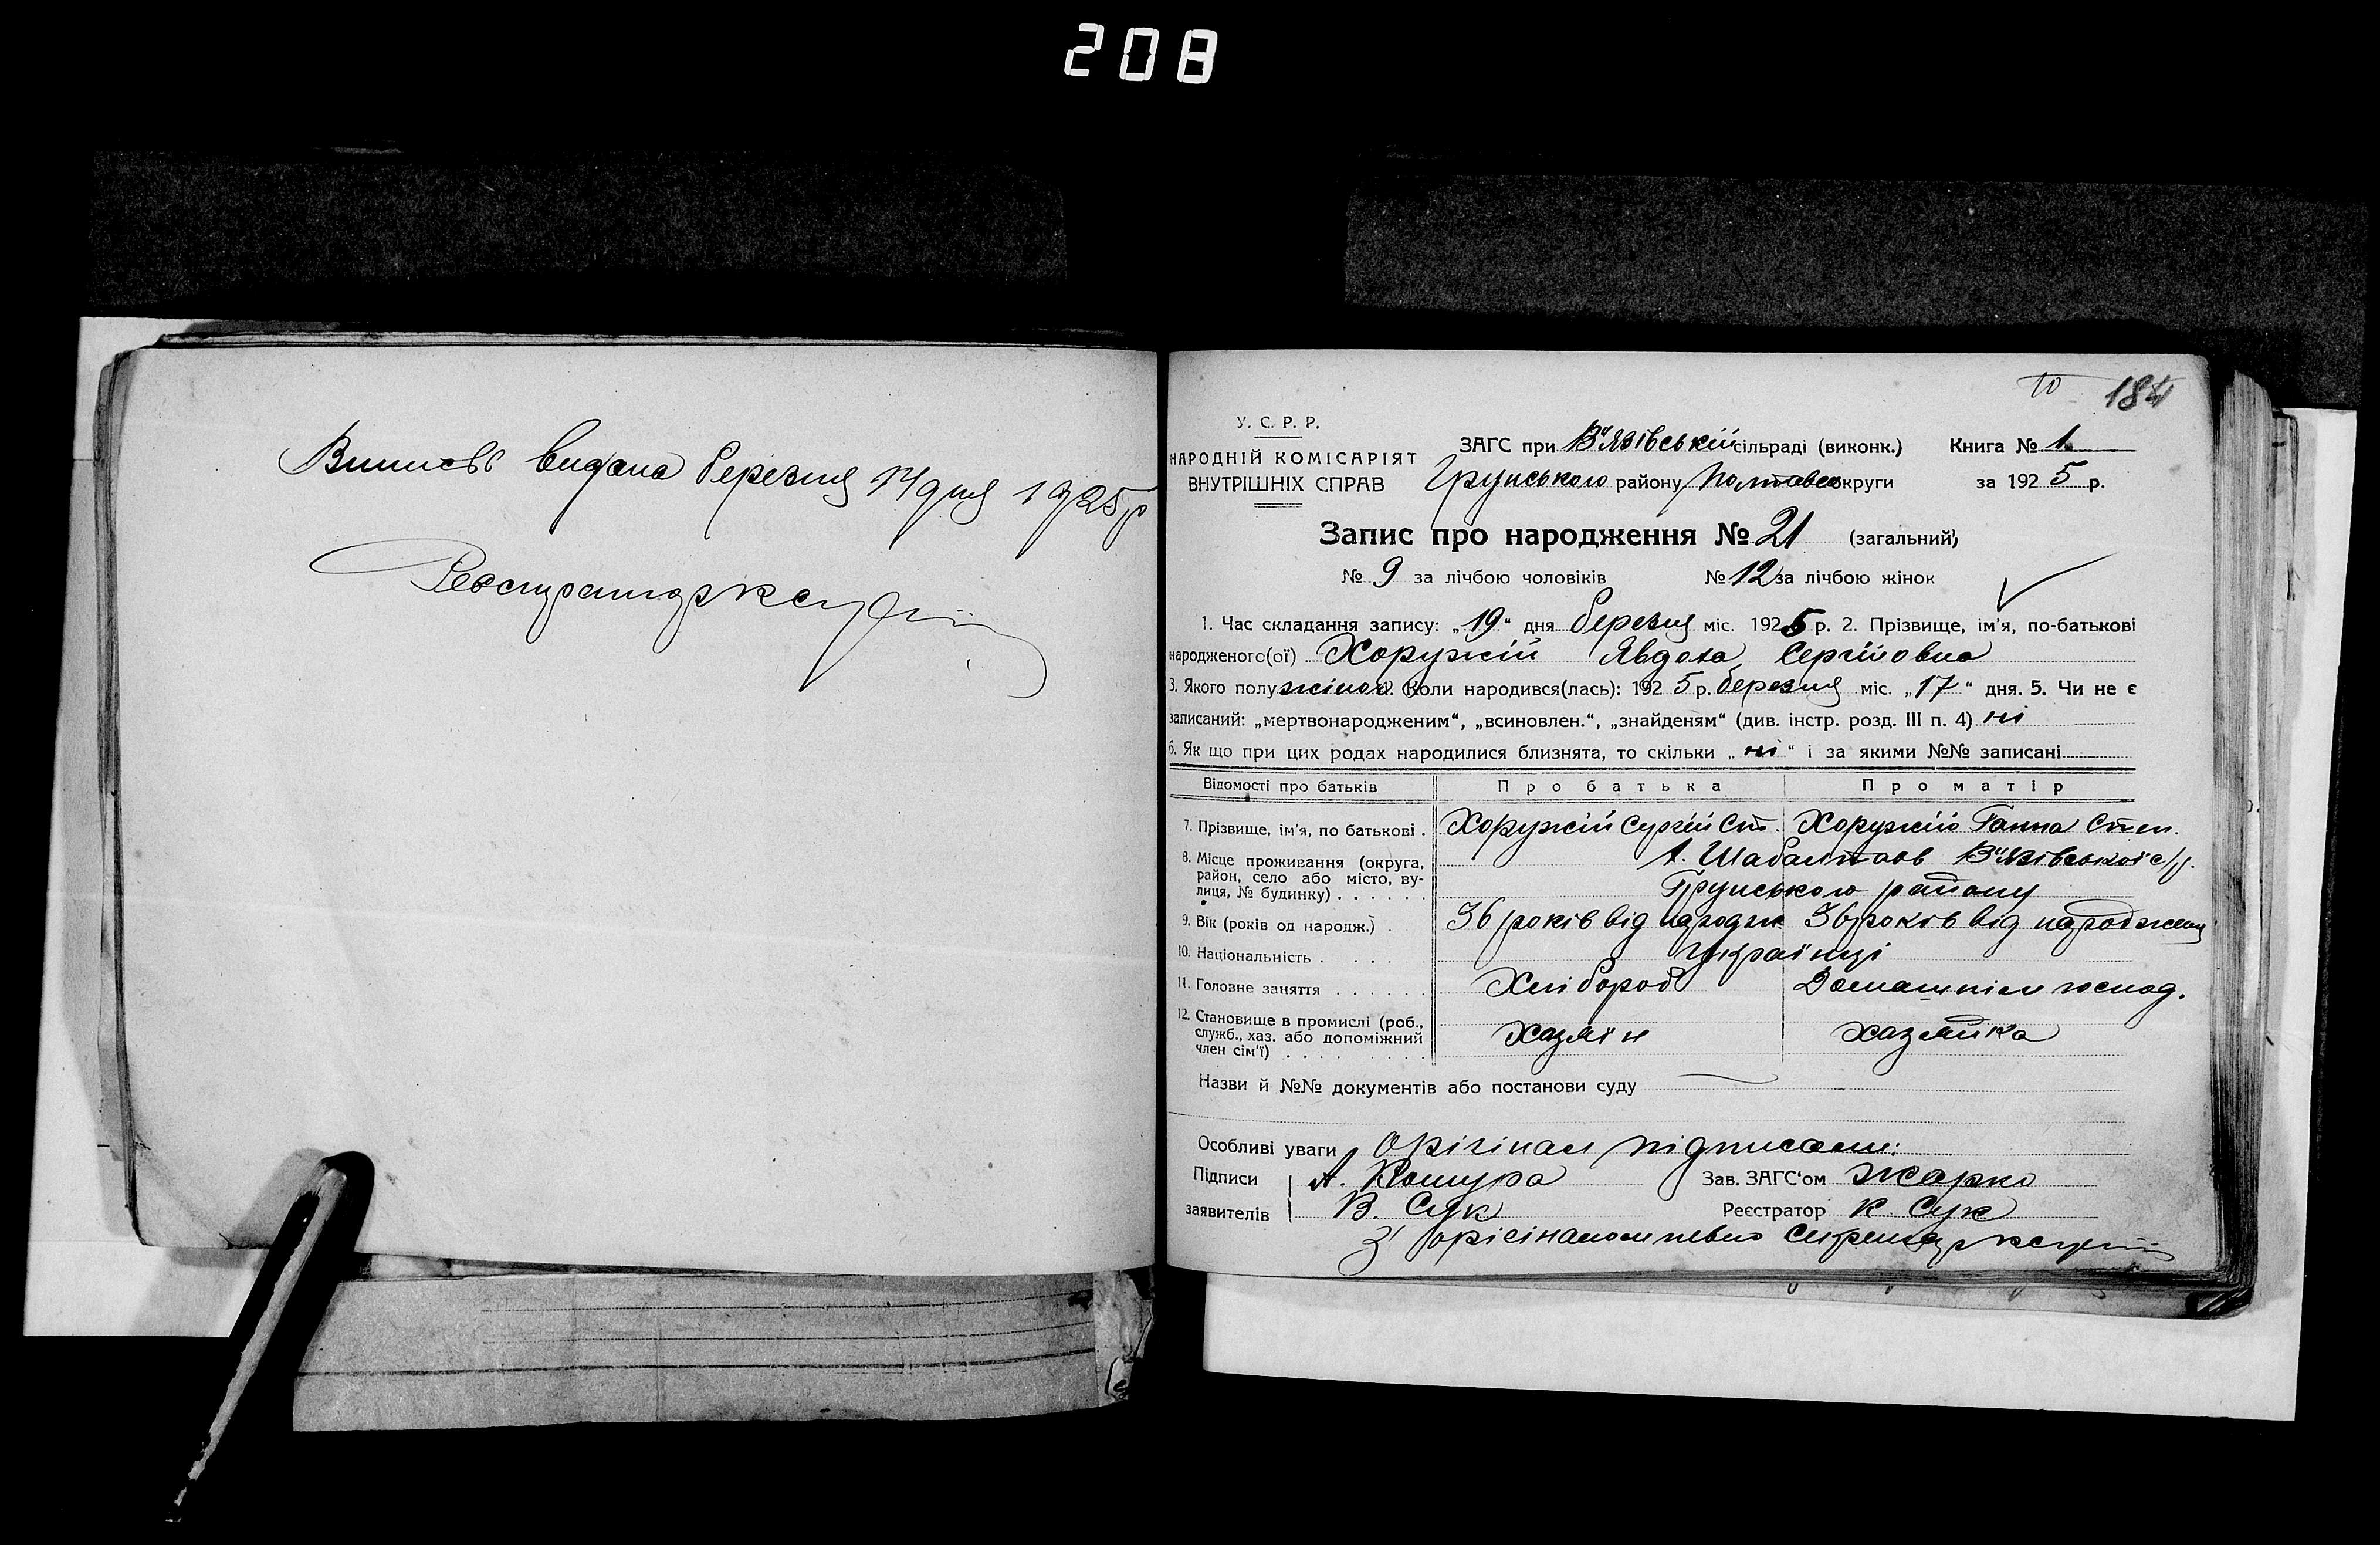 208
Виписъ видана березня 14 дня 1925 р
Реєстратор ксук
10 184
У. С. Р. Р.
НАРОДНІЙ КОМІСАРІЯТ
ВНУТРІШНІХ СПРАВ
ЗАГС при В'язівській сільраді (виконк.) Книга № 1
Грунського району Полтавсо округи за 1925 р.
Запис про народження № 21 (загальний)
№ 9 за лічбою чоловіків № 12 за лічбою жінок
1. Час складання запису: „19" дня березня міс. 1925 р. 2. Прізвище, ім'я, по-батькові
народженого(ої) Хоружій Явдоха Сергіївна
3. Якого полу жіноч. 4. Коли народився(лась): 1925 р. березня міс. „17" дня. 5. Чи не є
записаний: „мертвонародженим", „всиновлен.", „знайденям" (див. інстр. розд. III п. 4) ні
6. Як що при цих родах народилися близнята, то скільки „ні" і за якими №№ записані
Відомості про батьків Про батька Про матір
7. Прізвище, ім'я, по батькові . Хоружій Сергій Ст. Хоружій Ганна Степ.
8. Місце проживання (округа, район, село або місто, вулиця, № будинку) х. Шабалтаєв В'язівської с/р.
Грунського району
9. Вік (років од народж.) 36 років від народж 36 років від народження
10. Національність українці
11. Головне заняття Хлібороб Домашнім господ.
12. Становище в промислі (роб., служб., хаз. або допоміжний член сім'ї) Хазяїн хазяйка
Назви й №№ документів або постанови суду
Особливі уваги Орігінал підписали:
Підписи А. Кошура Зав. ЗАГС'ом Жарко
заявителів В. Сук Реєстратор К Сук
З орігіналом певно Секретар ксук